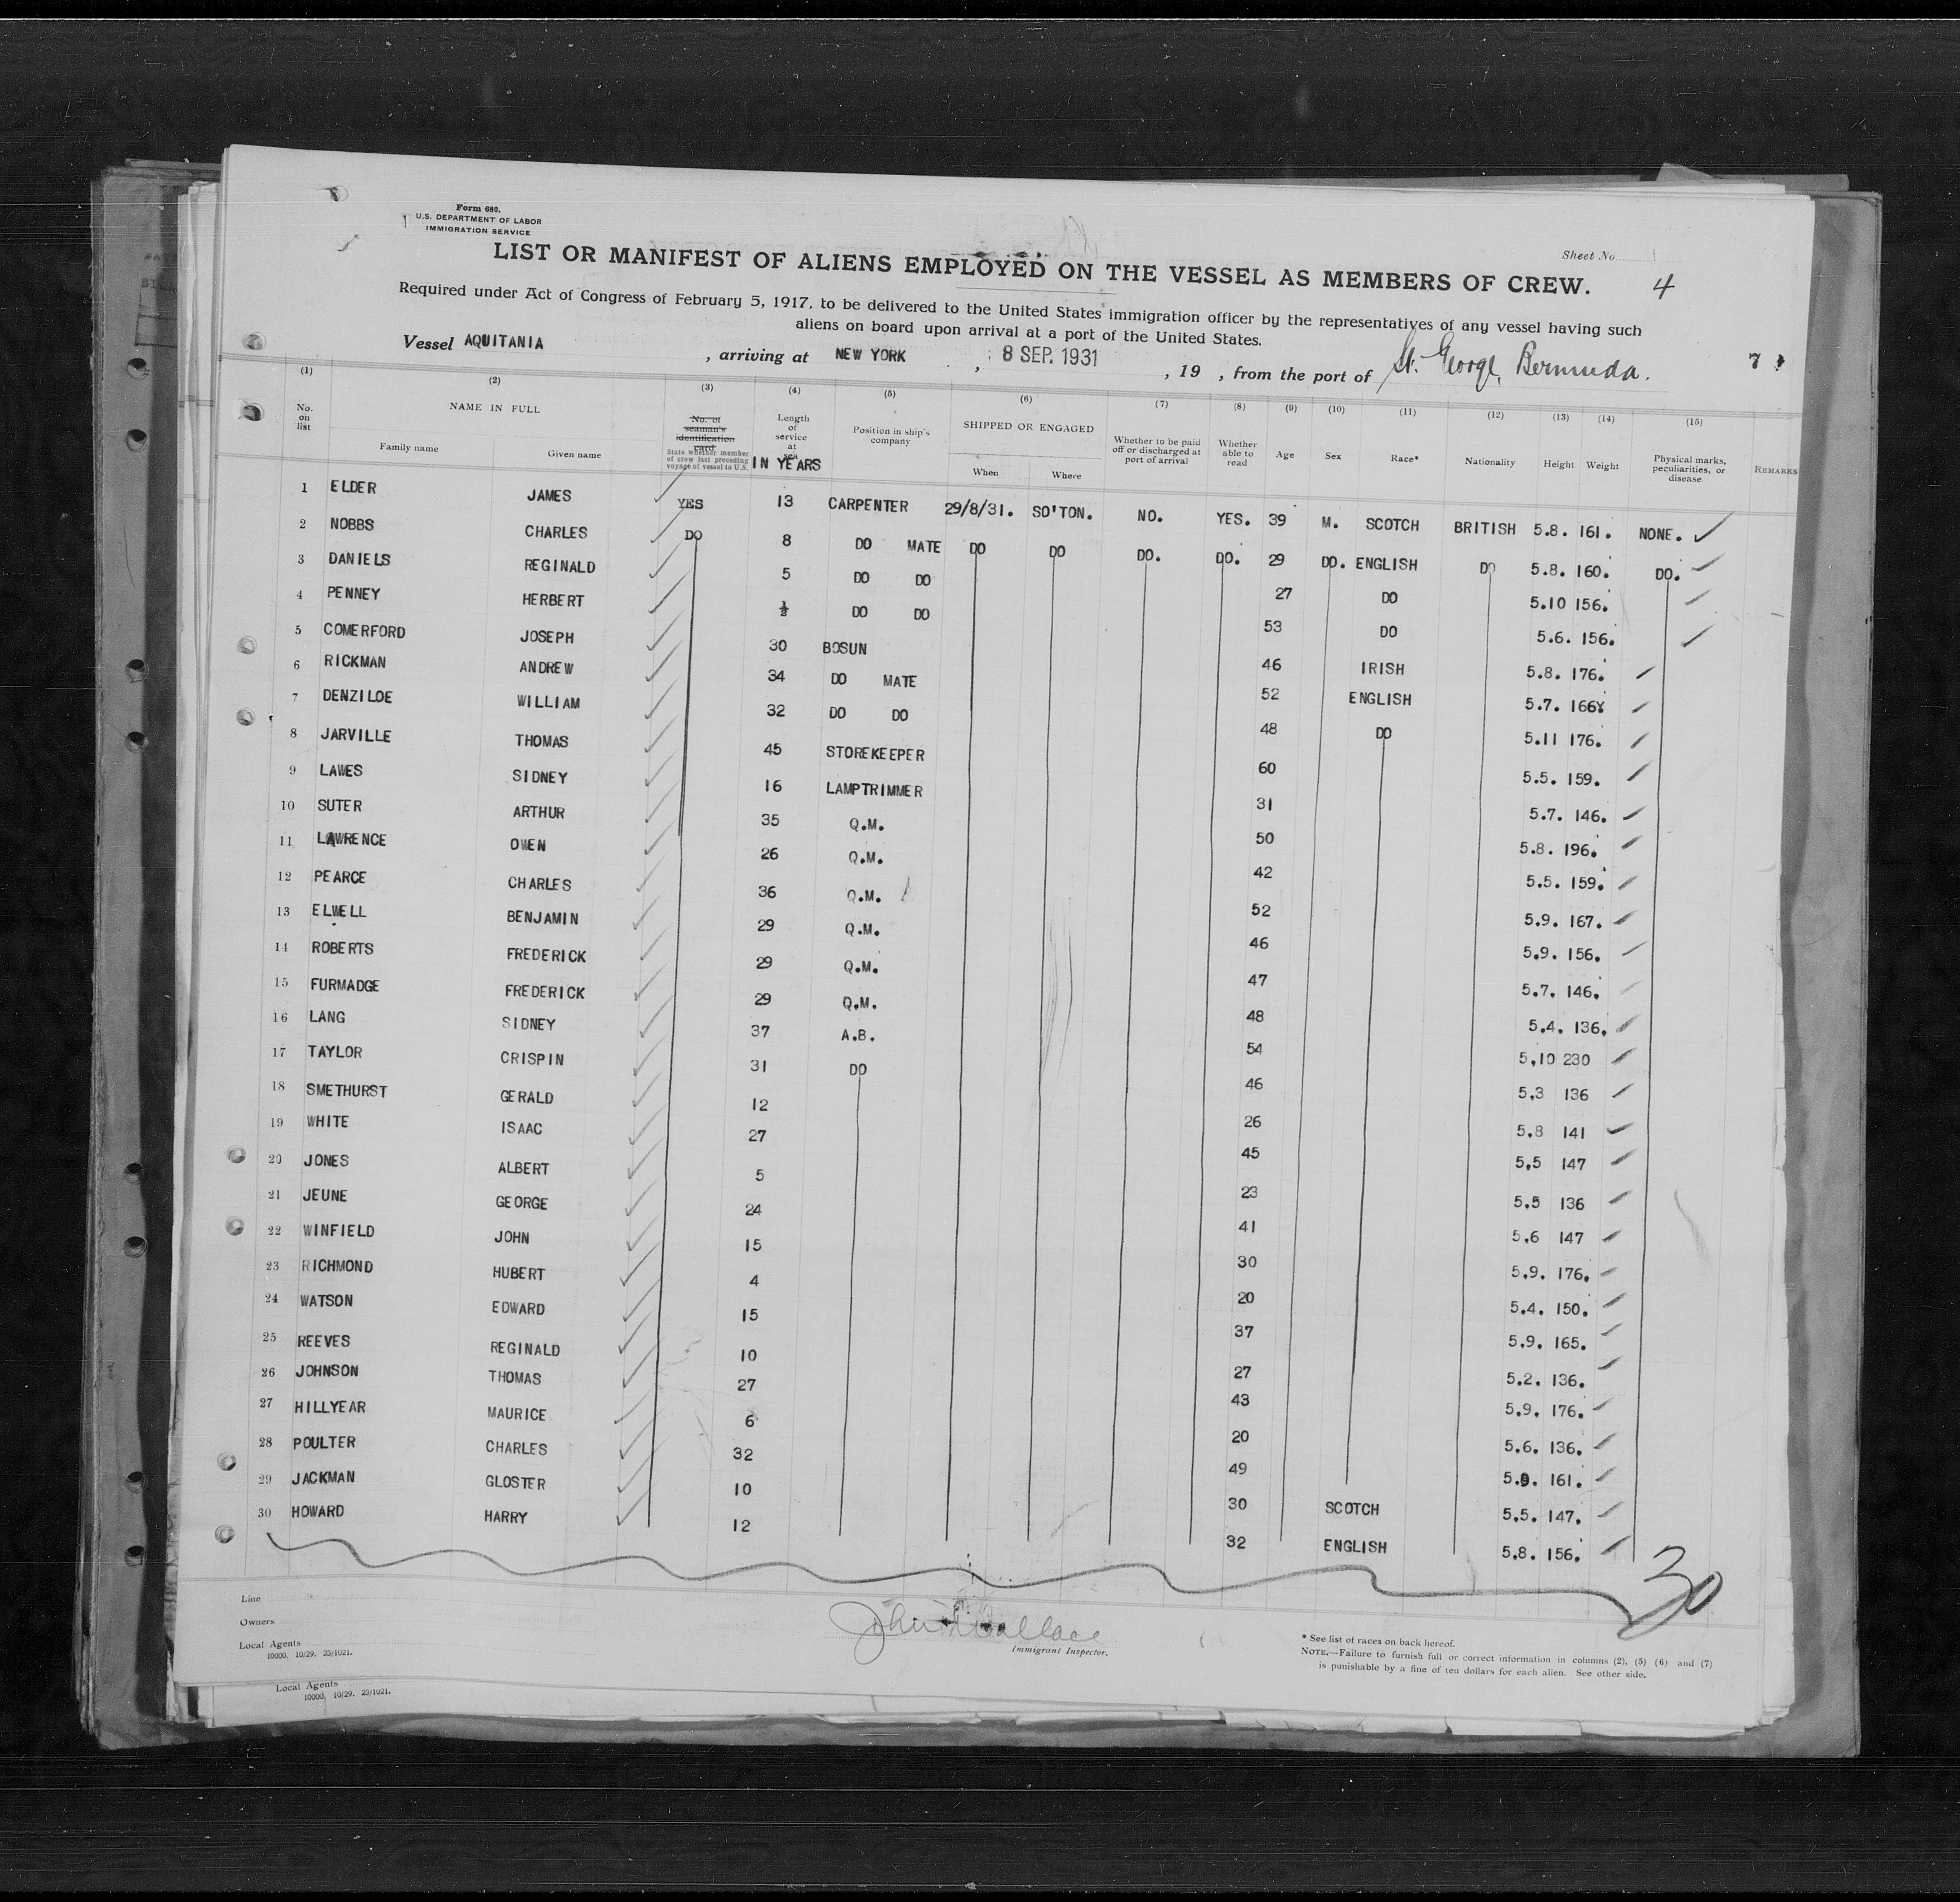 Form 689.
U.S. DEPARTMENT OF LABOR
IMMIGRATION SERVICE
Sheet No. 1
LIST OR MANIFEST OF ALIENS EMPLOYED ON THE VESSEL AS MEMBERS OF CREW. 4
Required under Act of Congress of February 5, 1917, to be delivered to the United States immigration officer by the representatives of any vessel having such
aliens on board upon arrival at a port of the United States.
Vessel AQUITANIA , arriving at NEW YORK , 8 SEP. 1931 , 19 , from the port of St. George, Bermuda. 7
(1) (2) (3) (4) (5) (6) (7) (8) (9) (10) (11) (12) (13) (14) (15)
No. on list NAME IN FULL Family name Given name No. of seaman's identification card State whether member of crew last preceding voyage of vessel to U.S. Length of service at sea IN YEARS Position in ship's company SHIPPED OR ENGAGED When Where Whether to be paid off or discharged at port of arrival Whether able to read Age Sex Race* Nationality Height Weight Physical marks, peculiarities, or disease REMARKS
1 ELDER JAMES YES 13 CARPENTER 29/8/31. SO'TON. NO. YES. 39 M. SCOTCH BRITISH 5.8. 161. NONE.
2 NOBBS CHARLES DO 8 DO MATE DO DO DO. DO. 29 DO. ENGLISH DO 5.8. 160. DO.
3 DANIELS REGINALD 5 DO DO 27 DO 5.10 156.
4 PENNEY HERBERT ½ DO DO 53 DO 5.6. 156.
5 COMERFORD JOSEPH 30 BOSUN 46 IRISH 5.8. 176.
6 RICKMAN ANDREW 34 DO MATE 52 ENGLISH 5.7. 166
7 DENZILOE WILLIAM 32 DO DO 48 DO 5.11 176.
8 JARVILLE THOMAS 45 STOREKEEPER 60 5.5. 159.
9 LAWES SIDNEY 16 LAMPTRIMMER 31 5.7. 146.
10 SUTER ARTHUR 35 Q.M. 50 5.8. 196.
11 LAWRENCE OWEN 26 Q.M. 42 5.5. 159.
12 PEARCE CHARLES 36 Q.M. 52 5.9. 167.
13 ELWELL BENJAMIN 29 Q.M. 46 5.9. 156.
14 ROBERTS FREDERICK 29 Q.M. 47 5.7. 146.
15 FURMADGE FREDERICK 29 Q.M. 48 5.4. 136.
16 LANG SIDNEY 37 A.B. 54 5.10 230
17 TAYLOR CRISPIN 31 DO 46 5.3 136
18 SMETHURST GERALD 12 26 5.8 141
19 WHITE ISAAC 27 45 5.5 147
20 JONES ALBERT 5 23 5.5 136
21 JEUNE GEORGE 24 41 5.6 147
22 WINFIELD JOHN 15 30 5.9. 176.
23 RICHMOND HUBERT 4 20 5.4. 150.
24 WATSON EDWARD 15 37 5.9. 165.
25 REEVES REGINALD 10 27 5.2. 136.
26 JOHNSON THOMAS 27 43 5.9. 176.
27 HILLYEAR MAURICE 6 20 5.6. 136.
28 POULTER CHARLES 32 49 5.9. 161.
29 JACKMAN GLOSTER 10 30 SCOTCH 5.5. 147.
30 HOWARD HARRY 12 32 ENGLISH 5.8. 156.
30
Line
Owners
Local Agents
10000, 10/29. 23/1021.
John Wallace
Immigrant Inspector.
* See list of races on back hereof.
NOTE.—Failure to furnish full or correct information in columns (2), (5) (6) and (7)
is punishable by a fine of ten dollars for each alien. See other side.
Local Agents
10000, 10/29. 23/1021.